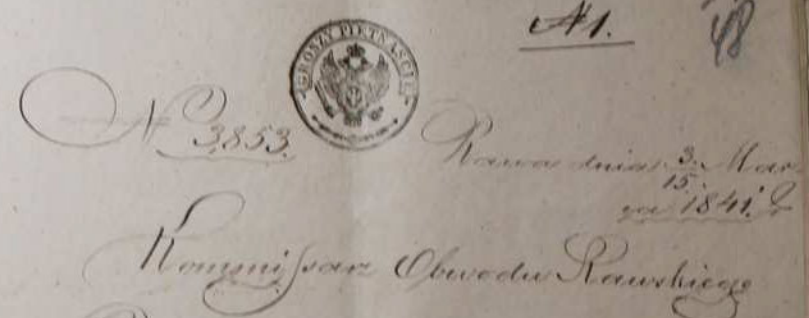 № 1.
48
GROSZY PIĘTNAŚCIE
N 3853.
Rawa dnia 3./15. Mar-
ca 1841. r
Kommissarz Obwodu Rawskiego